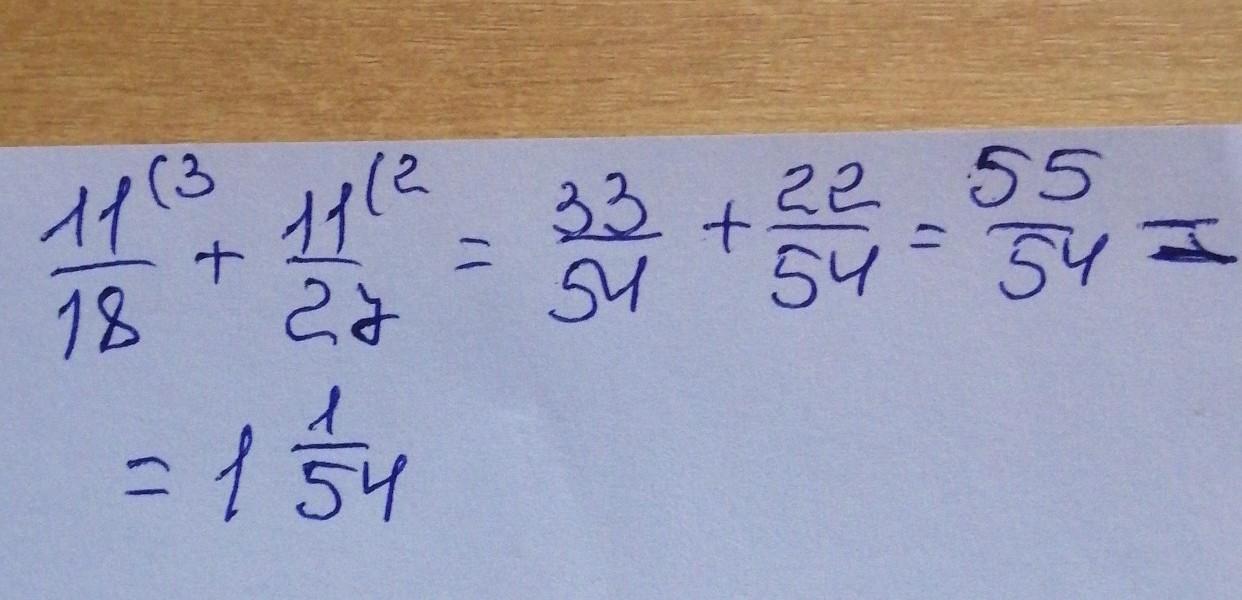 11/18 (3 + 11/27 (2 = 33/54 + 22/54 = 55/54 =
= 1 1/54